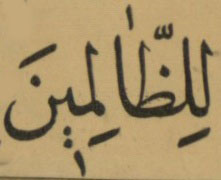 لِلظّٰالِمِينَ